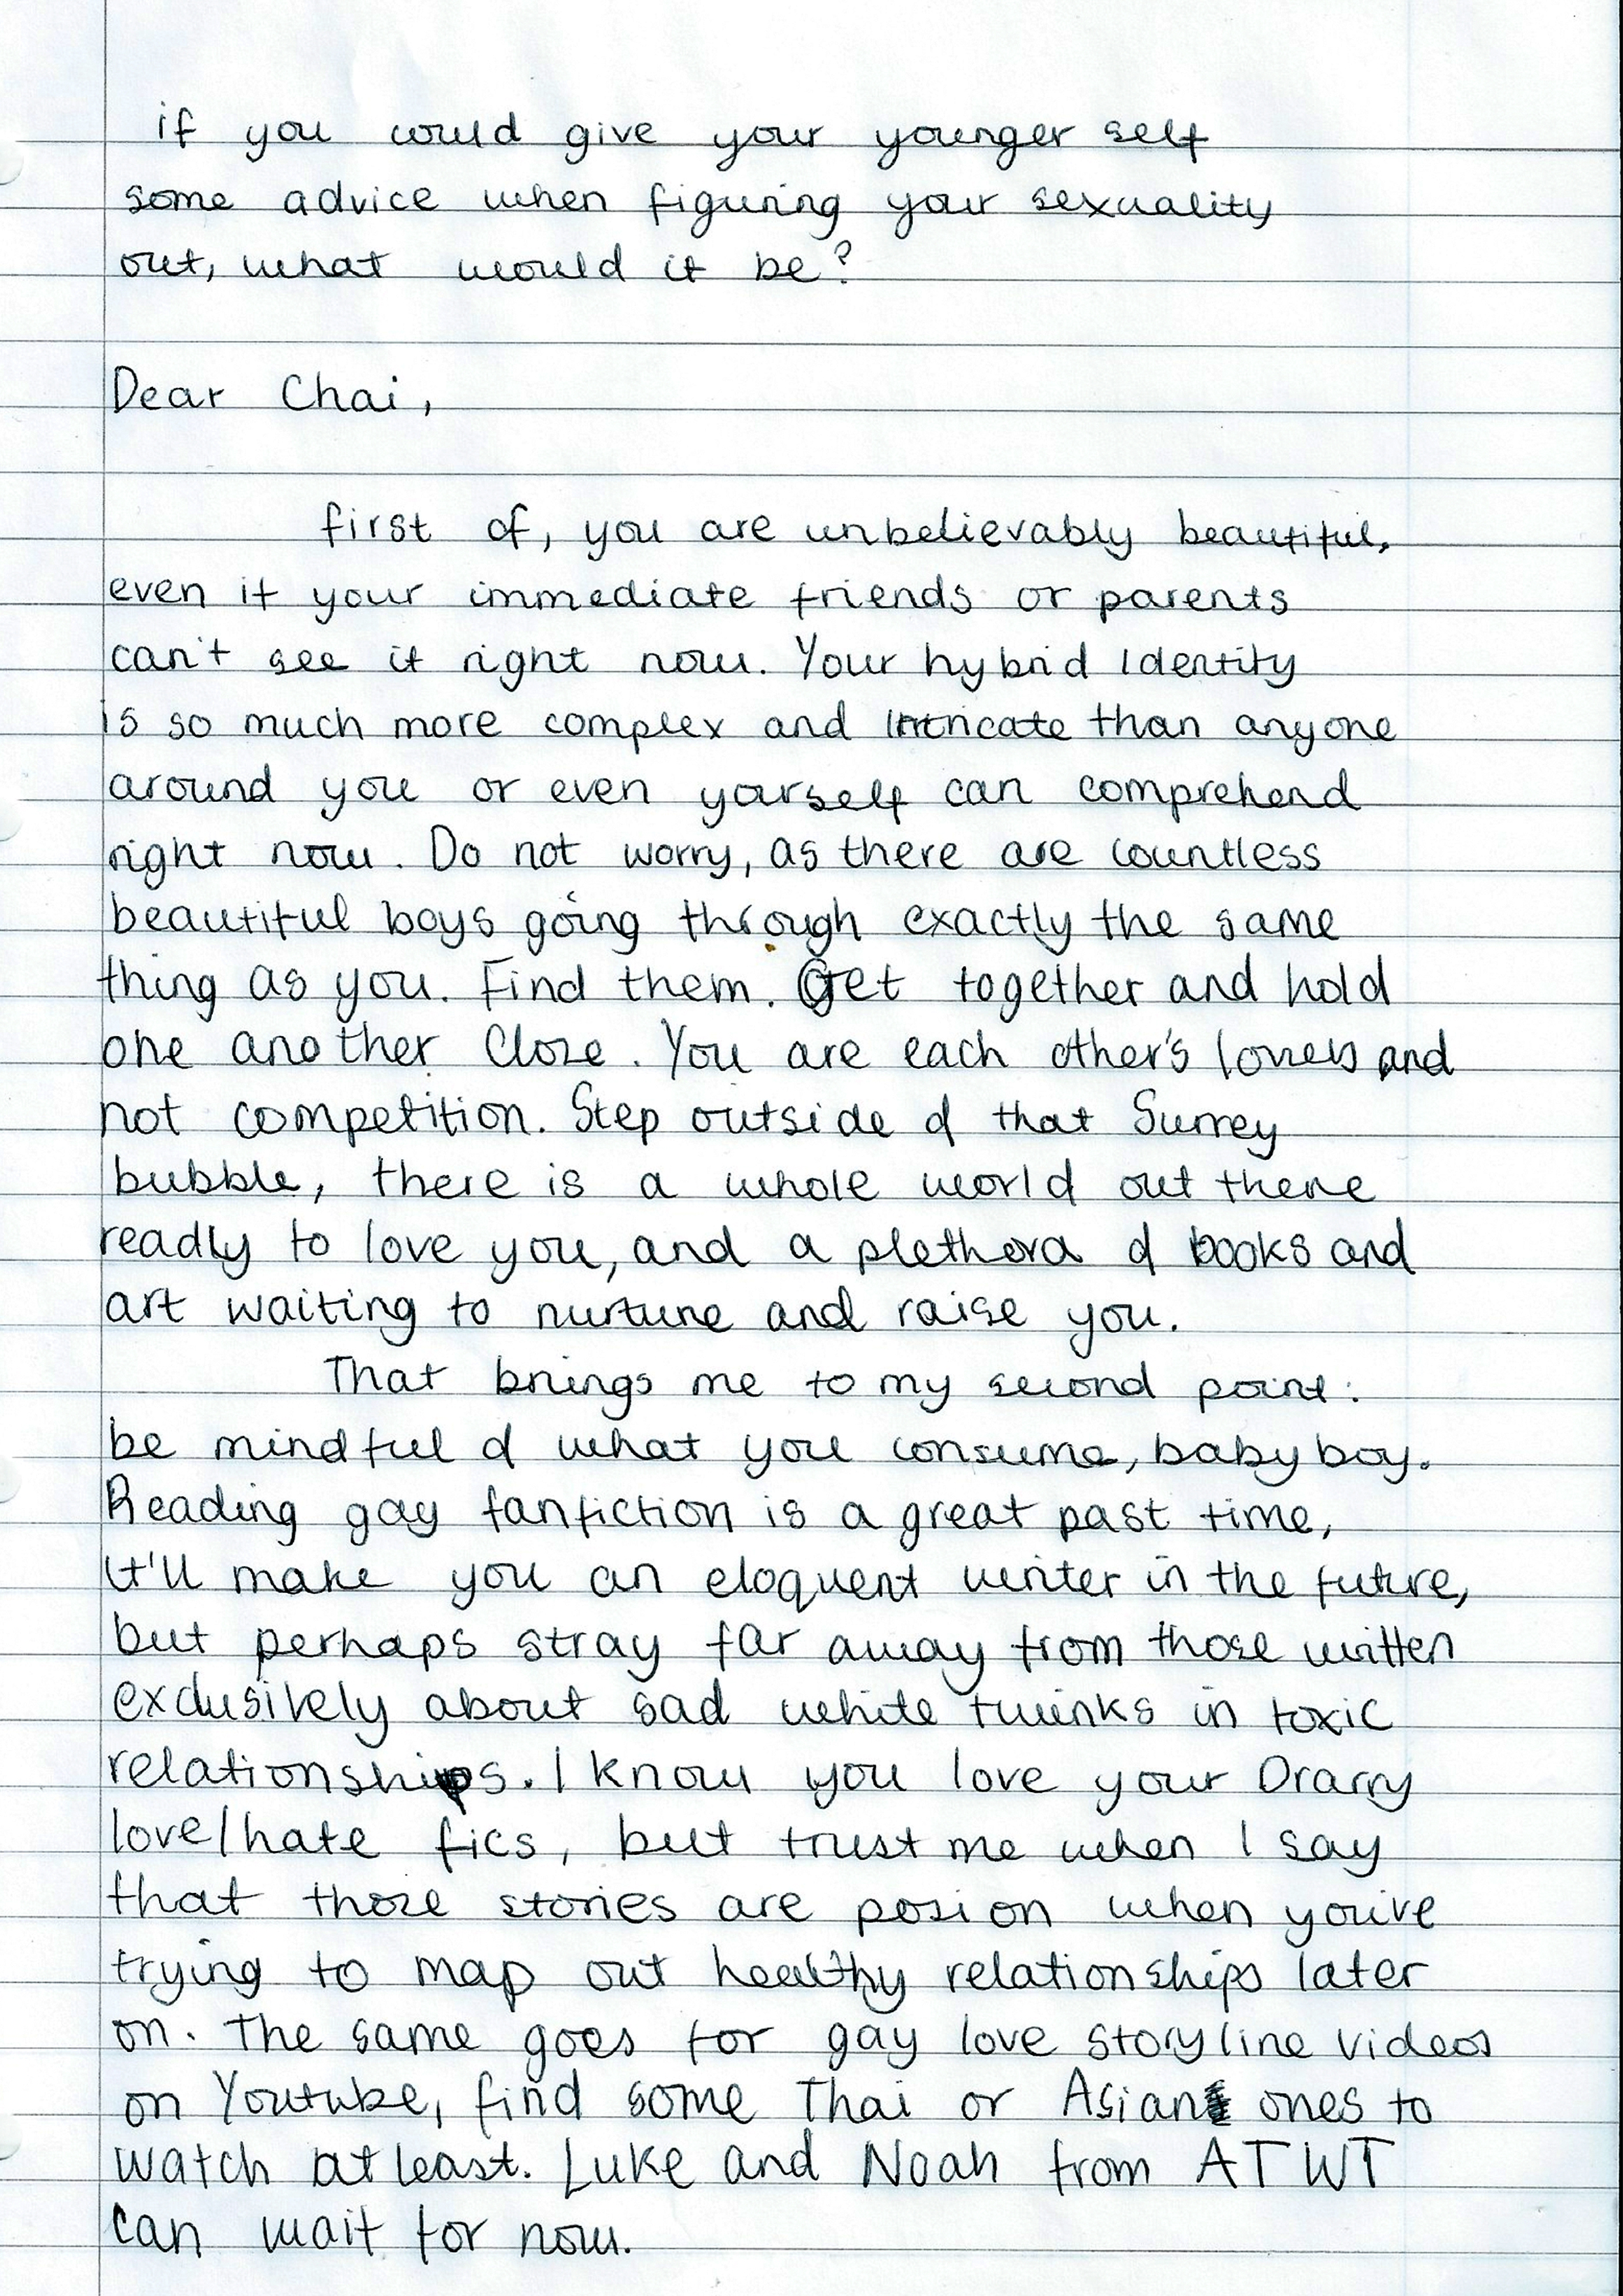 if you could give your younger self
some advice when figuring your sexuality
out, what would it be?
Dear Chai,
first of, you are unbelievably beautiful,
even if your immediate friends or parents
can't see it right now. Your hybrid identity
is so much more complex and intricate than anyone
around you or even yourself can comprehend
right now. Do not worry, as there are countless
beautiful boys going through exactly the same
thing as you. Find them. Get together and hold
one another close. You are each other's lovers and
not competition. Step outside of that Surrey
bubble, there is a whole world out there
ready to love you, and a plethora of books and
art waiting to nurture and raise you.
That brings me to my second point:
be mindful of what you consume, baby boy.
Reading gay fanfiction is a great past time,
it'll make you an eloquent writer in the future,
but perhaps stray far away from those written
exclusively about sad white twinks in toxic
relationships. I know you love your Drarry
love/hate fics, but trust me when I say
that those stories are posion when you're
trying to map out healthy relationships later
on. The same goes for gay love storyline videos
on Youtube, find some Thai or Asian ones to
watch at least. Luke and Noah from ATWT
can wait for now.